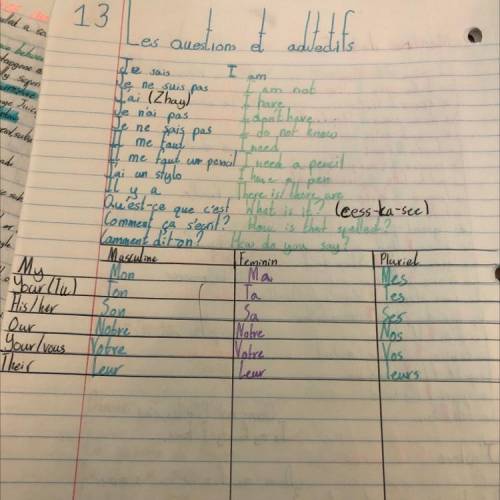 13 Les questions et adjectifs
Je sais I am
Je ne suis pas I am not
J'ai (Zhay) I have
Je n'ai pas I don't have...
Je ne sais pas I do not know
Il me faut I need
Il me faut un pencil I need a pencil
J'ai un stylo I have a pen
Il y a There is/there are
Qu'est-ce que c'est What is it? (cess-ka-see)
Comment ça s'écrit? How is that spelled?
Comment dit on? How do you say?
Masculine Feminin Pluriel
My Mon Ma Mes
Your (Tu) Ton Ta Tes
His/her Son Sa Ses
Our Notre Notre Nos
Your/vous Votre Votre Vos
Their Leur Leur Leurs